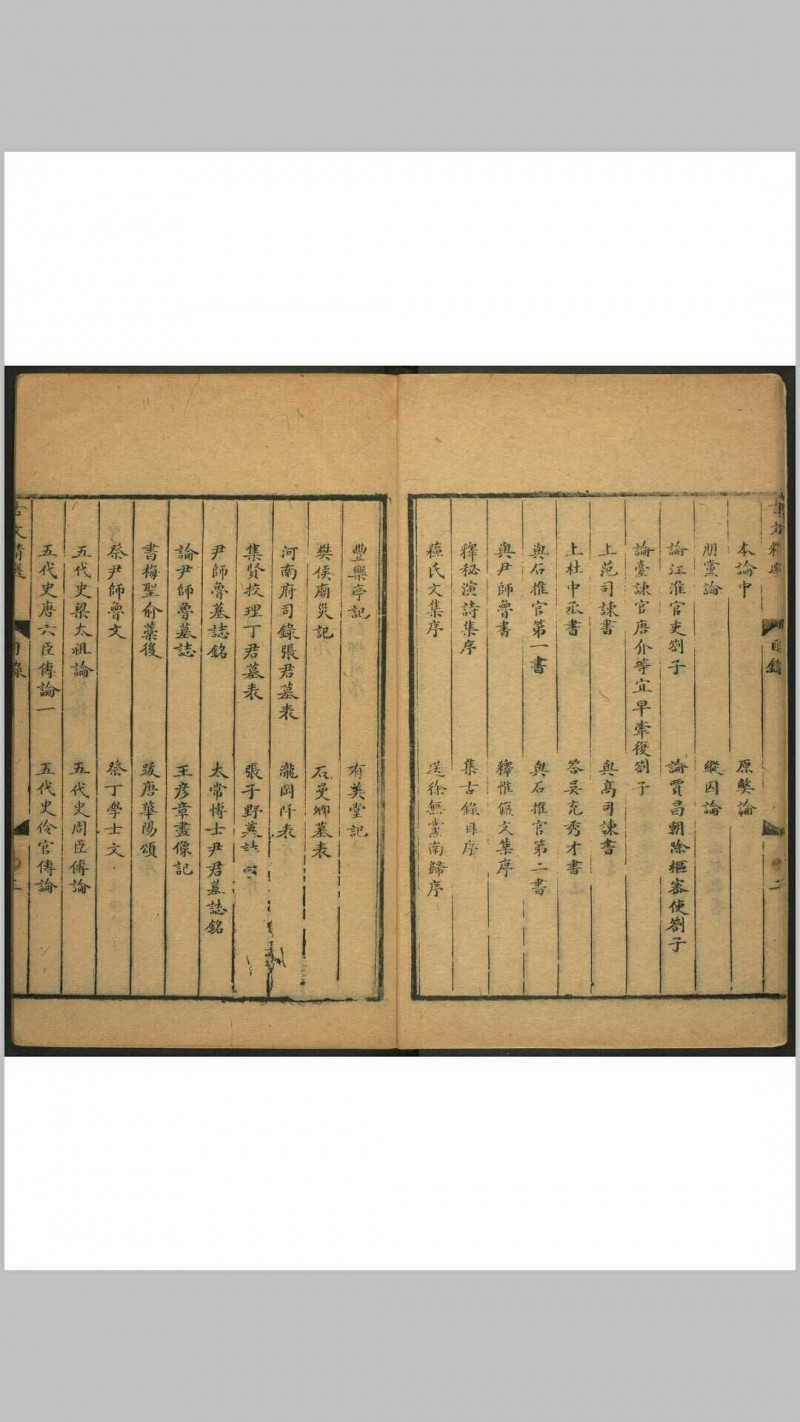 本論中 原弊論
朋黨論 縱囚論
論江淮官吏劄子 論賈昌朝除樞密使劄子
論臺諫官唐介等宜早牽復劄子
上范司諫書 與高司諫書
上杜中丞書 答吳充秀才書
與石推官第一書 與石推官第二書
與尹師魯書 釋惟儼文集序
釋秘演詩集序 集古錄目序
蘓氏文集序 送徐無黨南歸序
目錄
二
豐樂亭記 有美堂記
樊侯廟災記 石曼卿墓表
河南府司錄張君墓表 瀧岡阡表
集賢挍理丁君墓表 張子野墓誌
尹師魯墓誌銘 太常博士尹君墓誌銘
論尹師魯墓誌 王彥章畫像記
書梅聖俞藁後 跋唐華陽頌
祭尹師魯文 祭丁學士文
五代史梁太祖論 五代史周臣傳論
五代史唐六臣傳論一 五代史伶官傳論
文精選
目錄